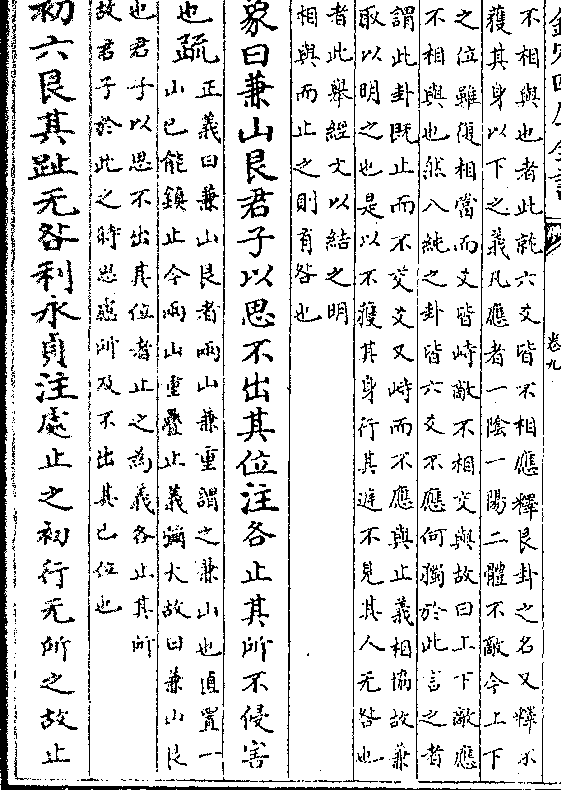 欽定四庫全書
卷九
不相與也者此就六爻皆不相應釋艮卦之名又釋不
獲其身以下之義凡應者一陰一陽二體不敵今上下
之位雖復相當而爻皆峙敵不相交與故曰上下敵應
不相與也然八純之卦皆六爻不應何獨於此言之者
謂此卦既止而不交爻又峙而不應與止義相協故兼
取以明之也是以不獲其身行其庭不見其人无咎也
者此舉經文以結之明
相與而止之則有咎也
象曰兼山艮君子以思不出其位注各止其所不侵害
也疏
正義曰兼山艮者兩山兼重謂之兼山也直置一
山已能鎮止今兩山重疊止義彌大故曰兼山艮
也君子以思不出其位者止之為義各止其所
故君子於此之時思慮所及不出其己位也
初六艮其趾无咎利永貞注處止之初行无所之故止